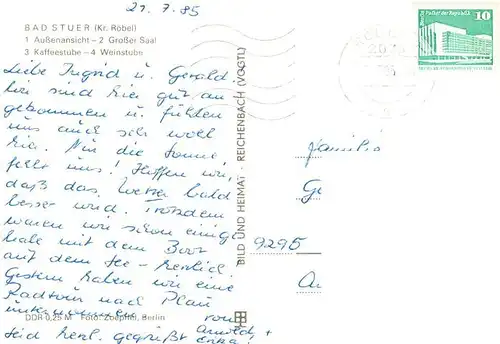 21.7.85
BAD STUER (Kr. Röbel)
1 Außenansicht – 2 Großer Saal
3 Kaffeestube – 4 Weinstube
Liebe Ingrid u. Gerald
wir sind hier gut an-
gekommen u. fühlen
uns auch sehr wohl
hier. Nur die Sonne
fehlt uns! Hoffen wir,
daß das Wetter bald
besser wird. Trotzdem
waren wir schon einige
male mit dem Boot
auf dem See - herrlich!
Gestern haben wir eine
Radtour nach Plau
unternommen.
Seid herzl. gegrüßt
von
Arnold +
Erika!
DDR 0,25 M Foto: Zoephel, Berlin
BILD UND HEIMAT · REICHENBACH (VOGTL)
10
Familie
9295